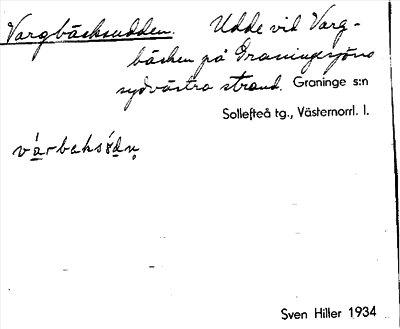 Vargbäcksudden. Udde vid Varg-
bäcken på Graningesjöns
sydvästra strand. Graninge s:n
Sollefteå tg., Västernorrl. l.
Sven Hiller 1934